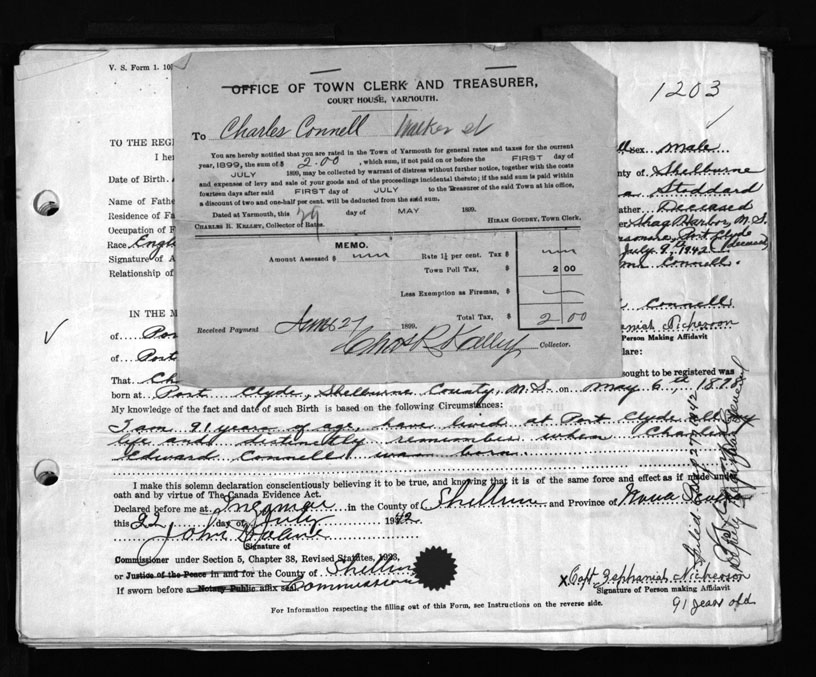 V. S. Form 1.
1203
OFFICE OF TOWN CLERK AND TREASURER,
COURT HOUSE, YARMOUTH.
To Charles Connell Walker st
You are hereby notified that you are rated in the Town of Yarmouth for general rates and taxes for the current
year, 1899, the sum of $ 2.00, which sum, if not paid on or before the FIRST day of
JULY 1899, may be collected by warrant of distress without further notice, together with the costs
and expenses of levy and sale of your goods and of the proceedings incidental thereto; if the said sum is paid within
fourteen days after said FIRST day of JULY to the Treasurer of the said Town at his office,
a discount of two and one-half per cent. will be deducted from the said sum.
Dated at Yarmouth, this 29 day of MAY 1899.
CHARLES R. KELLEY, Collector of Rates. HIRAM GOUDEY, Town Clerk.
MEMO.
Amount Assessed $ Rate 1½ per cent. Tax $
Town Poll Tax, $ 2 00
Less Exemption as Fireman, $
Total Tax, $ 2 00
Received Payment June 27 1899.
Chas R Kelley Collector.
TO THE REG
I her
Date of Birth.
Name of Fathe
Residence of Fa
Occupation of F
Race Engl
Signature of A
Relationship of
sex Male
of Shelburne
Stoddard
ather Deceased
Shag Harbor, N.S.
Port Clyde
July 9th 1942 (deceased)
Connell.
IN THE M
of Por
of Port
Connell
Nickerson
Person Making Affidavit
lare:
That Ch sought to be registered was
born at Port Clyde, Shelburne County, N.S. on May 6th 1878
My knowledge of the fact and date of such Birth is based on the following Circumstances:
I am 91 years of age, have lived at Port Clyde all my
life and distinctly remember when Charles
Edward Connell was born.
I make this solemn declaration conscientiously believing it to be true, and knowing that it is of the same force and effect as if made under
oath and by virtue of The Canada Evidence Act.
Declared before me at in the County of Shelburne and Province of Nova Scotia
this 22 day of July 1942
John
Signature of
Commissioner under Section 5, Chapter 38, Revised Statutes, 1923,
or Justice of the Peace in and for the County of Shelburne
If sworn before a Notary Public affix seal. Commissioner
X Capt Zephaniah Nickerson
Signature of Person making Affidavit
91 years old
For Information respecting the filling out of this Form, see Instructions on the reverse side.
Deputy Registrar General